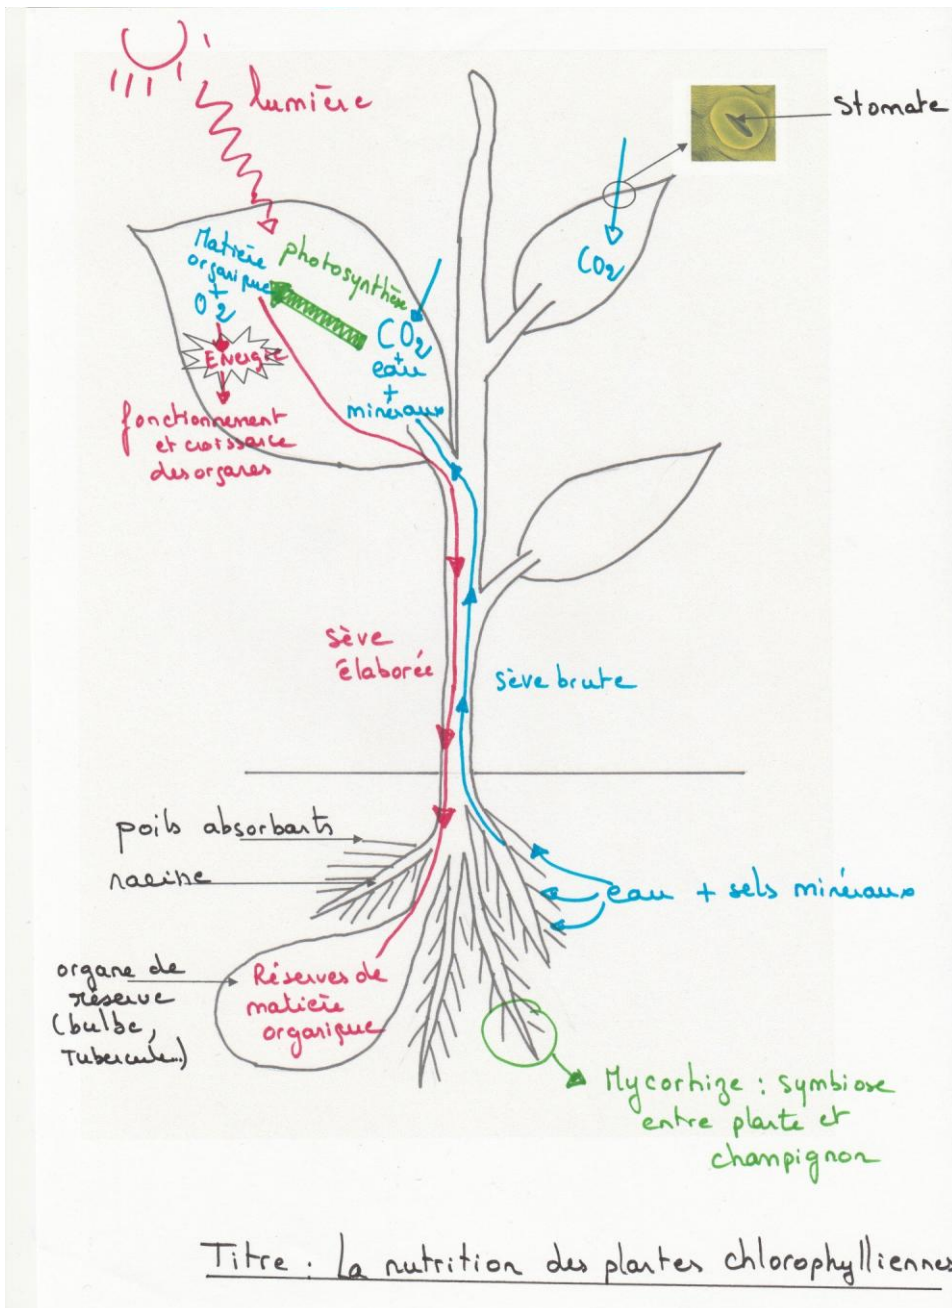 lumière
stomate
Matière
organique
+
O2
photosynthèse
CO2
+
eau
+
minéraux
CO2
Energie
fonctionnement
et croissance
des organes
sève
élaborée
sève brute
poils absorbants
racine
eau + sels minéraux
organe de
réserve
(bulbe,
Tubercule..)
Réserves de
matière
organique
Mycorhize : symbiose
entre plante et
champignon
Titre : La nutrition des plantes chlorophylliennes